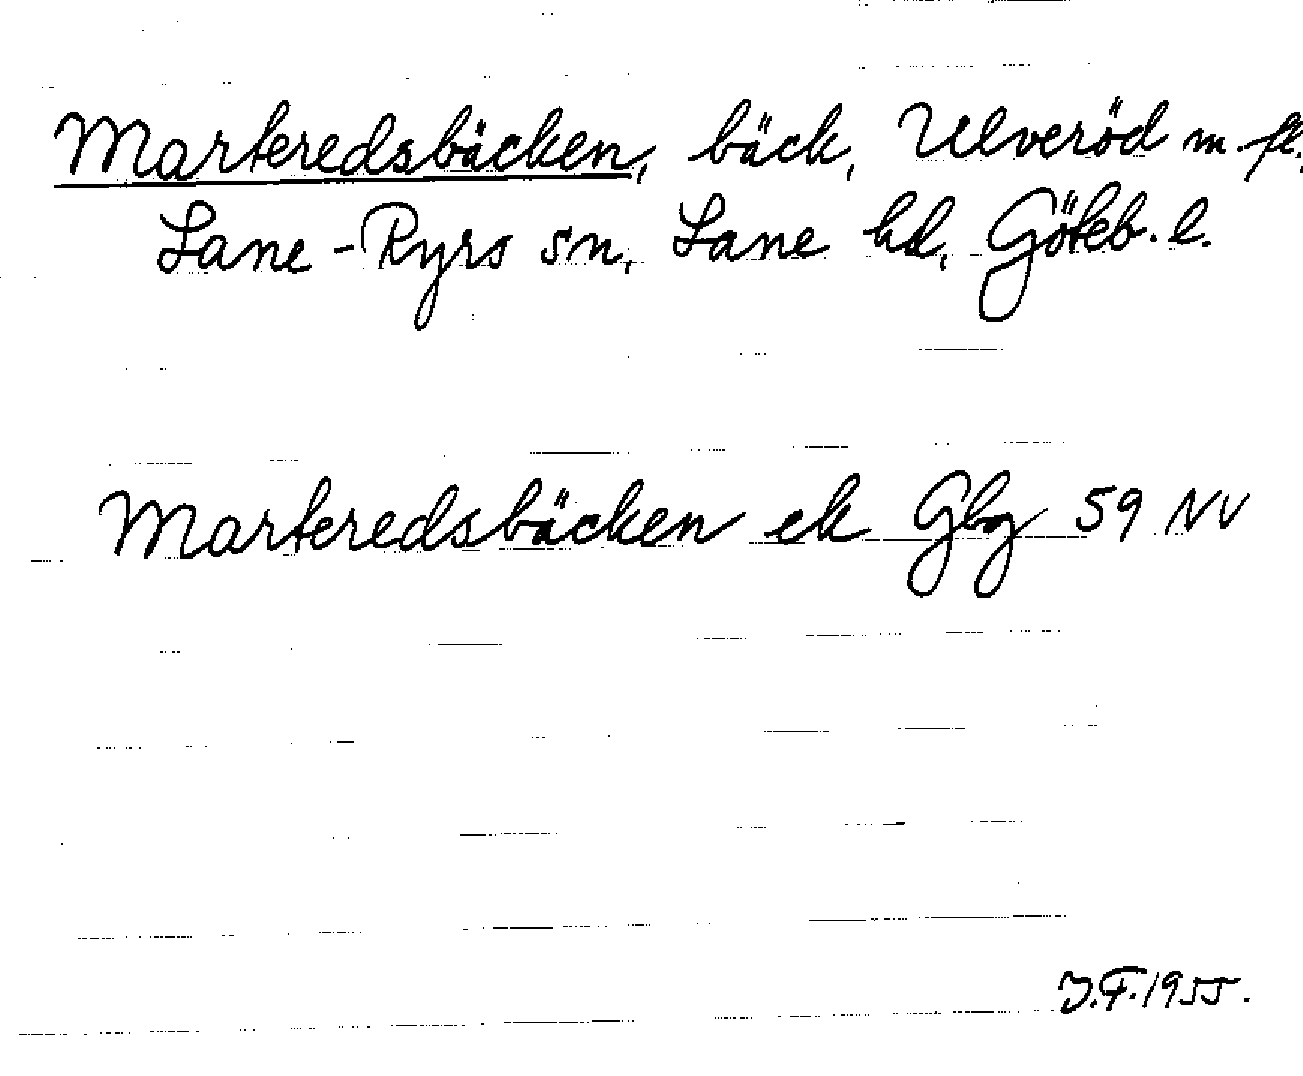 Marteredsbäcken, bäck, Ulveröd m fl.
Lane-Ryrs sn, Lane hd, Göteb. l.
Marteredsbäcken ek Gbg 59 NV
J.F. 1955.